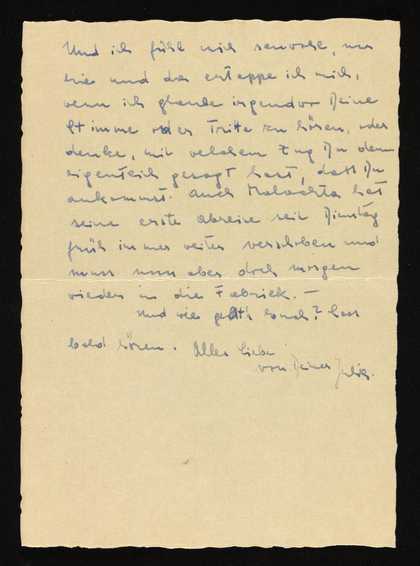 Und ich fühl mich sauwohl, nur
hie und da ertappe ich mich,
wenn ich glaube irgendwo Deine
Stimme oder Tritte zu hören, oder
denke, mit welchem Zug Du denn
eigentlich gesagt hast, daß Du
ankommst. Auch hat
seine erste Abreise seit Dienstag
früh immer weiter verschoben und
muss nun aber doch morgen
wieder in die Fabriek. —
Und wie geht's sonst? Lass
bald hören. Alles Liebe
von Deiner